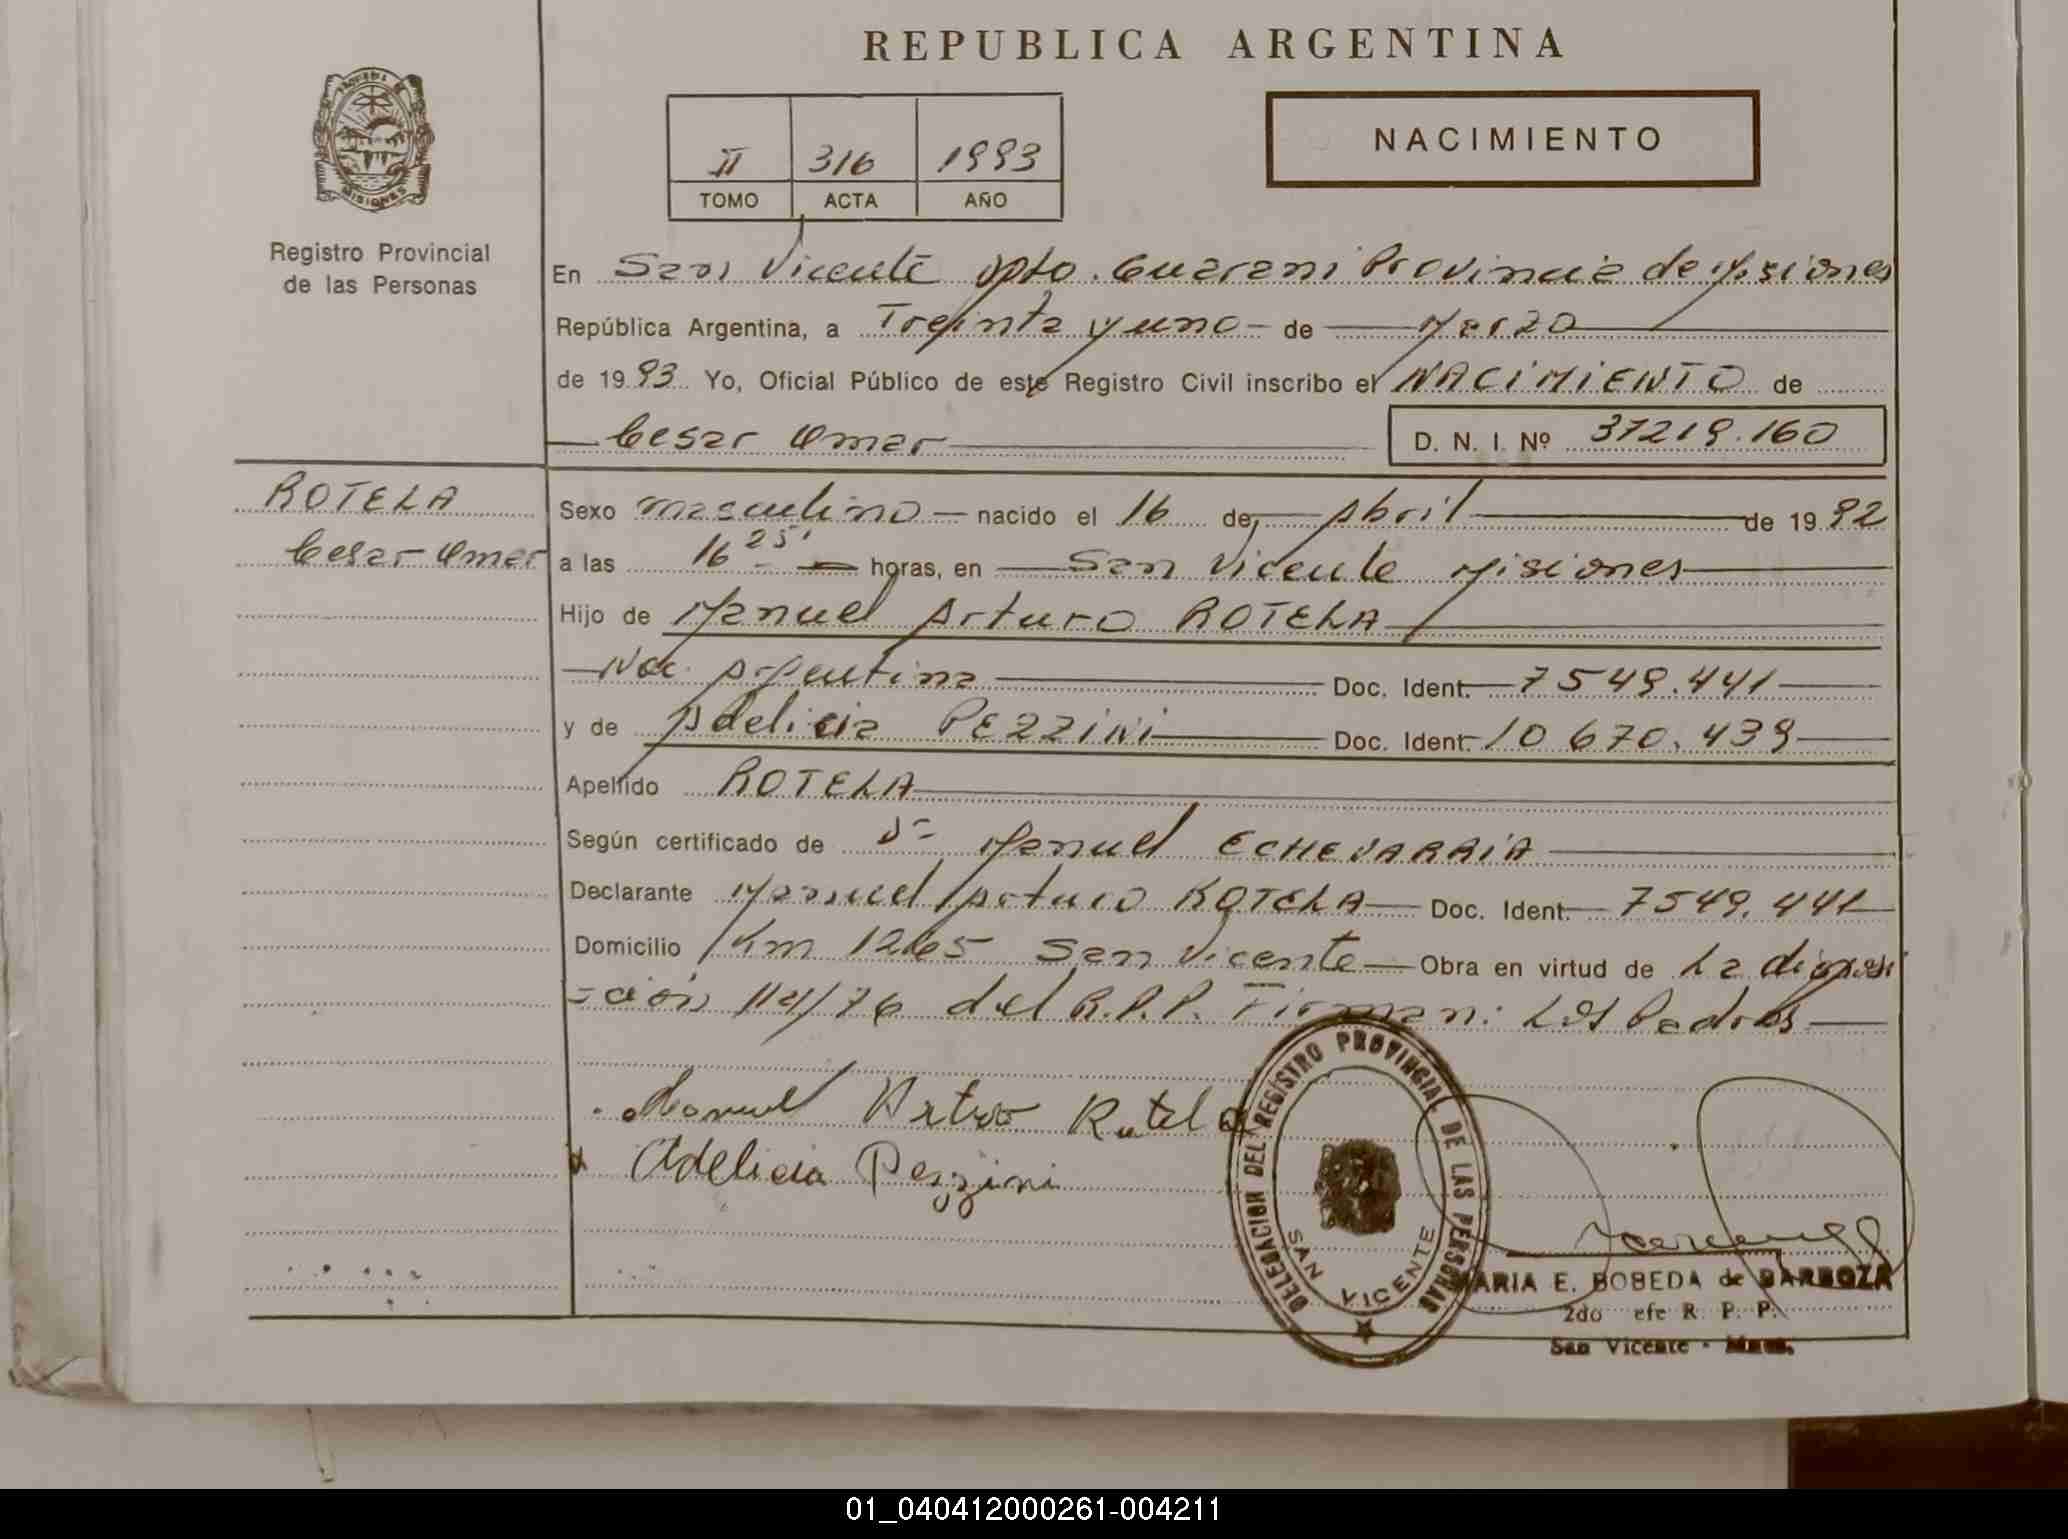 REPUBLICA ARGENTINA
MISIONES
Registro Provincial
de las Personas
II 316 1993
TOMO ACTA AÑO
NACIMIENTO
En San Vicente Dpto. Guarani Provincia de Misiones
República Argentina, a Treinta y uno de Marzo
de 1993 Yo, Oficial Público de este Registro Civil inscribo el NACIMIENTO de
Cesar Omar D. N. I. Nº 37219.160
ROTELA
Cesar Omar
Sexo masculino nacido el 16 de Abril de 1992
a las 16 25' horas, en San Vicente Misiones
Hijo de Manuel Arturo ROTELA
Nac Argentina Doc. Ident. 7549.441
y de Adelicia PEZZINI Doc. Ident. 10 670.439
Apellido ROTELA
Según certificado de Manuel ECHEVARRIA
Declarante Manuel Arturo ROTELA Doc. Ident. 7549.441
Domicilio Km 1265 San Vicente Obra en virtud de La disposi
-ción 114/76 del R.P.P. Firman: Los Padres
Manuel Arturo Rotela
Adelicia Pezzini
DELEGACION DEL REGISTRO PROVINCIAL DE LAS PERSONAS
SAN VICENTE
MARIA E. BOBEDA de BARBOZA
2do efe R. P. P.
San Vicente - Mnes.
01_040412000261-004211